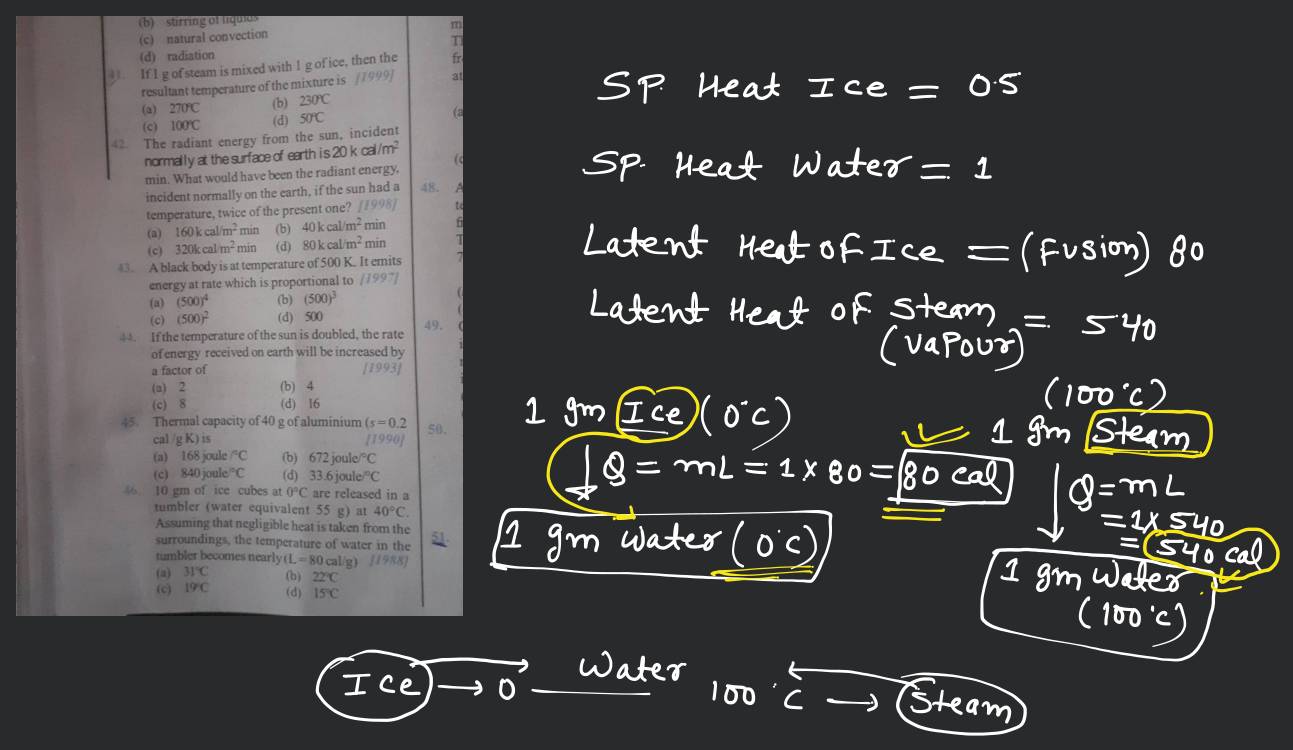 (b) stirring of liquids
(c) natural convection
(d) radiation
41. If 1 g of steam is mixed with 1 g of ice, then the
resultant temperature of the mixture is [1999]
(a) 270°C (b) 230°C
(c) 100°C (d) 50°C
42. The radiant energy from the sun, incident
normally at the surface of earth is 20 k cal/m²
min. What would have been the radiant energy,
incident normally on the earth, if the sun had a
temperature, twice of the present one? [1998]
(a) 160 k cal/m² min (b) 40 k cal/m² min
(c) 320k cal/m² min (d) 80 k cal/m² min
43. A black body is at temperature of 500 K. It emits
energy at rate which is proportional to [1997]
(a) (500)⁴ (b) (500)³
(c) (500)² (d) 500
44. If the temperature of the sun is doubled, the rate
of energy received on earth will be increased by
a factor of [1993]
(a) 2 (b) 4
(c) 8 (d) 16
45. Thermal capacity of 40 g of aluminium (s = 0.2
cal /g K) is [1990]
(a) 168 joule /°C (b) 672 joule/°C
(c) 840 joule/°C (d) 33.6 joule/°C
46. 10 gm of ice cubes at 0°C are released in a
tumbler (water equivalent 55 g) at 40°C.
Assuming that negligible heat is taken from the
surroundings, the temperature of water in the
tumbler becomes nearly (L = 80 cal/g) [1988]
(a) 31°C (b) 22°C
(c) 19°C (d) 15°C
48.
49.
50.
51.
SP. Heat Ice = 0.5
SP. Heat Water = 1
Latent Heat of Ice = (Fusion) 80
Latent Heat of Steam = 540
(Vapour)
1 gm Ice (0°C)
Q = mL = 1 x 80 = 80 cal
1 gm water (0°C)
(100°C)
1 gm Steam
Q = mL
= 1x 540
= 540 cal
1 gm Water
(100°C)
Ice → 0 Water 100°C → Steam